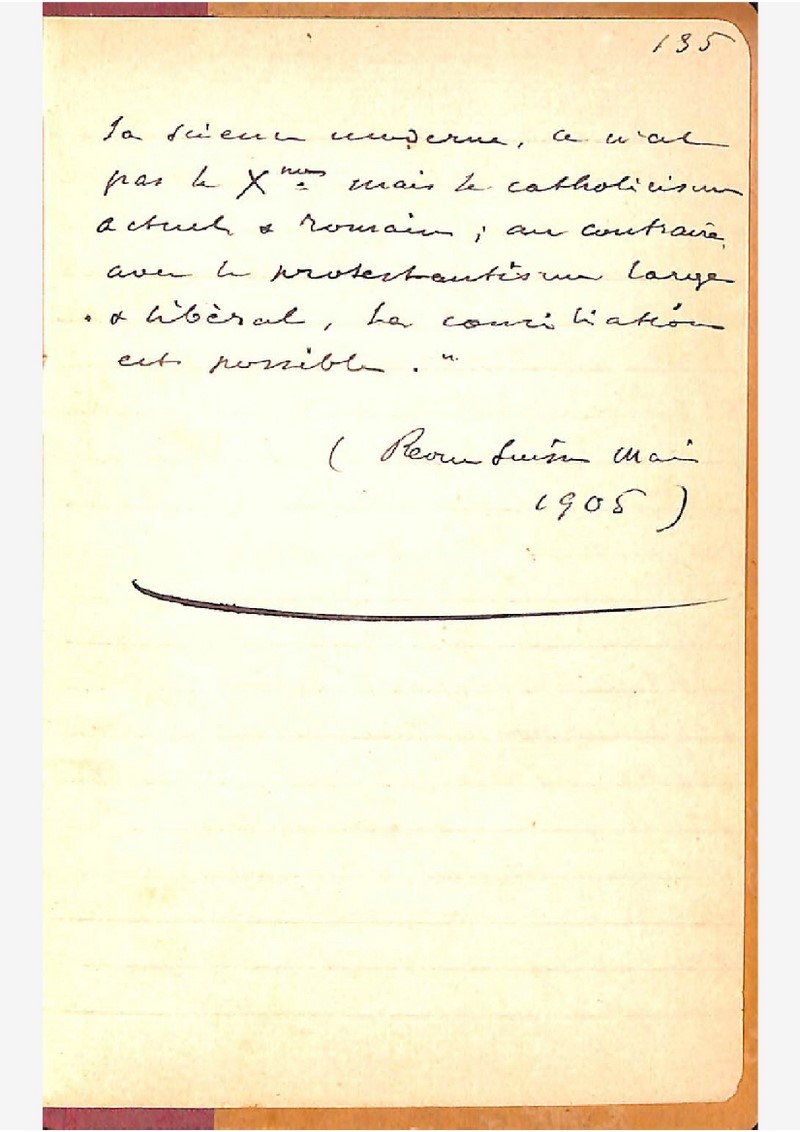 135
la science moderne, ce n'est
pas le X^nisme mais le catholicisme
actuel & romain ; au contraire
avec le protestantisme large
& libéral, la conciliation
est possible . "
( Revue Suisse Mai
1905 )